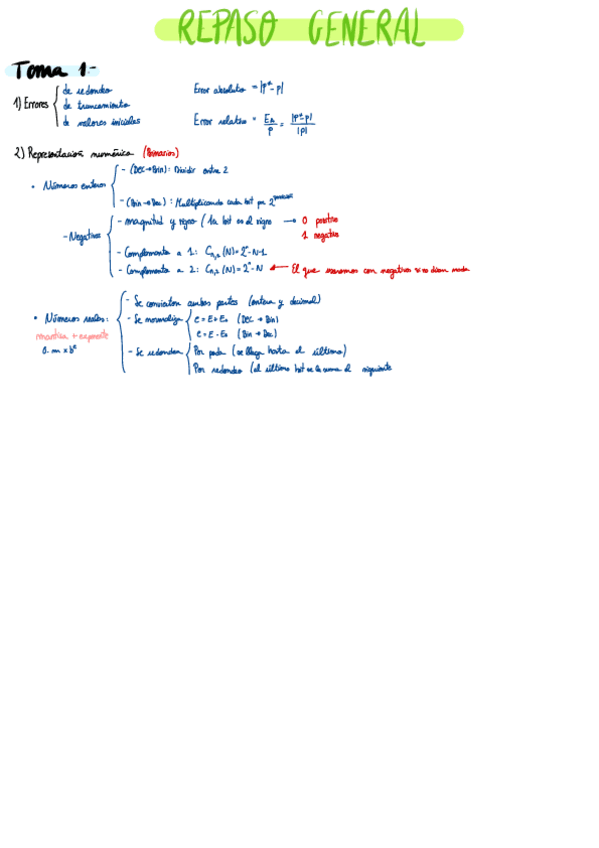 REPASO GENERAL
Tema 1.-
1) Errores
de redondeo
de truncamiento
de valores iniciales
Error absoluto = |p*-p|
Error relativo = EA/p = |p*-p|/|p|
2) Representación numérica (Binarios)
• Números enteros
- (Dec→Bin): Dividir entre 2
- (Bin→Dec): Multiplicando cada bit por 2^posición
- Negativos
- magnitud y signo (1er bit es el signo → 0 positivo
1 negativo
- Complemento a 1: Cn,1(N)=2^n-N-1
- Complemento a 2: Cn,2(N)=2^n-N ← El que usaremos con negativos si no dicen nada
• Números reales:
mantisa + exponente
0.m x b^e
- Se convierten ambas partes (entera y decimal)
- Se normaliza
e = E+E₀ (Dec → Bin)
e = E-E₀ (Bin → Dec)
- Se redondea
Por poda (se llega hasta el último)
Por redondeo (al último bit se le suma el siguiente